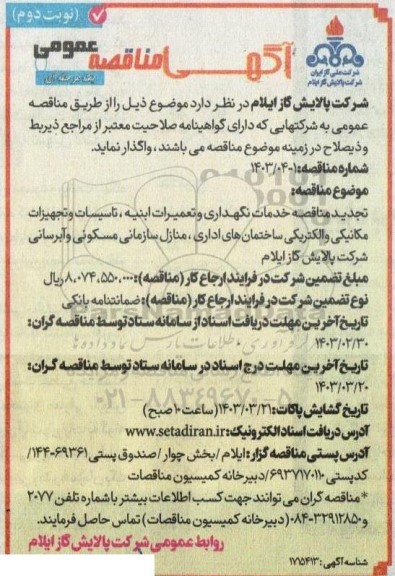 (نوبت دوم)
آگهی مناقصه عمومی
یک مرحله ای
شرکت ملی گاز ایران
شرکت پالایش گاز ایلام
شرکت پالایش گاز ایلام در نظر دارد موضوع ذیل را از طریق مناقصه
عمومی به شرکتهایی که دارای گواهینامه صلاحیت معتبر از مراجع ذیربط
و ذیصلاح در زمینه موضوع مناقصه می باشند، واگذار نماید.
شماره مناقصه: ۱-۱۴۰۳/۰۴
موضوع مناقصه:
تجدید مناقصه خدمات نگهداری و تعمیرات ابنیه، تاسیسات و تجهیزات
مکانیکی والکتریکی ساختمان های اداری، منازل سازمانی مسکونی و آبرسانی
شرکت پالایش گاز ایلام
مبلغ تضمین شرکت در فرایند ارجاع کار (مناقصه): ۸،۰۷۴،۵۵۰،۰۰۰ ریال
نوع تضمین شرکت در فرایند ارجاع کار (مناقصه): ضمانتنامه بانکی
تاریخ آخرین مهلت دریافت اسناد از سامانه ستاد توسط مناقصه گران:
۱۴۰۳/۰۲/۳۰
تاریخ آخرین مهلت درج اسناد در سامانه ستاد توسط مناقصه گران:
۱۴۰۳/۰۳/۲۰
تاریخ گشایش پاکات: ۱۴۰۳/۰۳/۲۱ (ساعت ۱۰ صبح)
آدرس دریافت اسناد الکترونیک: www.setadiran.ir
آدرس پستی مناقصه گزار: ایلام / بخش چوار / صندوق پستی ۶۹۳۶۱-۱۴۴/
کدپستی ۶۹۳۷۱۷۰۱۱۰/ دبیرخانه کمیسیون مناقصات
*مناقصه گران می توانند جهت کسب اطلاعات بیشتر با شماره تلفن ۲۰۷۷
و ۳۲۹۱۲۸۵۰-۰۸۴ (دبیرخانه کمیسیون مناقصات) تماس حاصل فرمایند.
روابط عمومی شرکت پالایش گاز ایلام
شناسه آگهی: ۱۷۱۵۴۱۳
۰۲۱-۸۸۳۴۹۶۷۰-۵